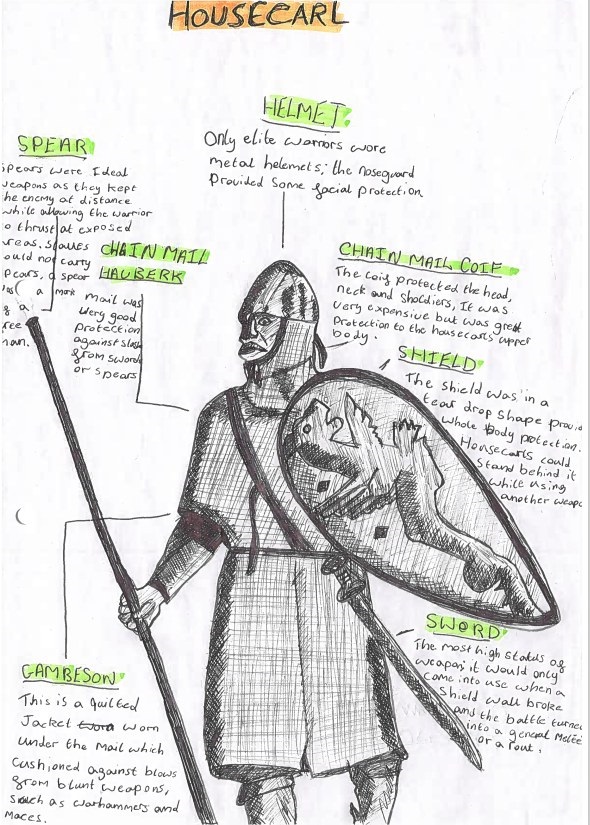 HOUSECARL
HELMET
Only elite warriors wore
metal helemets; the noseguard
Provided Some facial protection
SPEAR
Spears were Ideal
weapons as they kept
the enemy at distance
while allowing the warrior
to thrust at exposed
areas. Slaves
could not carry
spears, a spear
was a mark
of a
free
man.
CHAIN MAIL
HAUBERK
mail was
very good
protection
against slash
from sword
or spears
CHAIN MAIL COIF
The coif protected the head,
neck and sholdiers, It was
very expensive but was great
protection to the housecarls upper
body.
SHIELD
The shield was in a
tear drop shape provid
whole body protection.
Housecarls could
Stand behind it
while using
another weapo
SWORD
The most high status of
weapon; it would only
come into use when a
Shield wall broke
and the battle turned
into a general Melee
or a rout.
GAMBESON
This is a quilted
Jacket worn
under the Mail which
cushioned against blows
from blunt weapons,
such as warhammers and
maces.